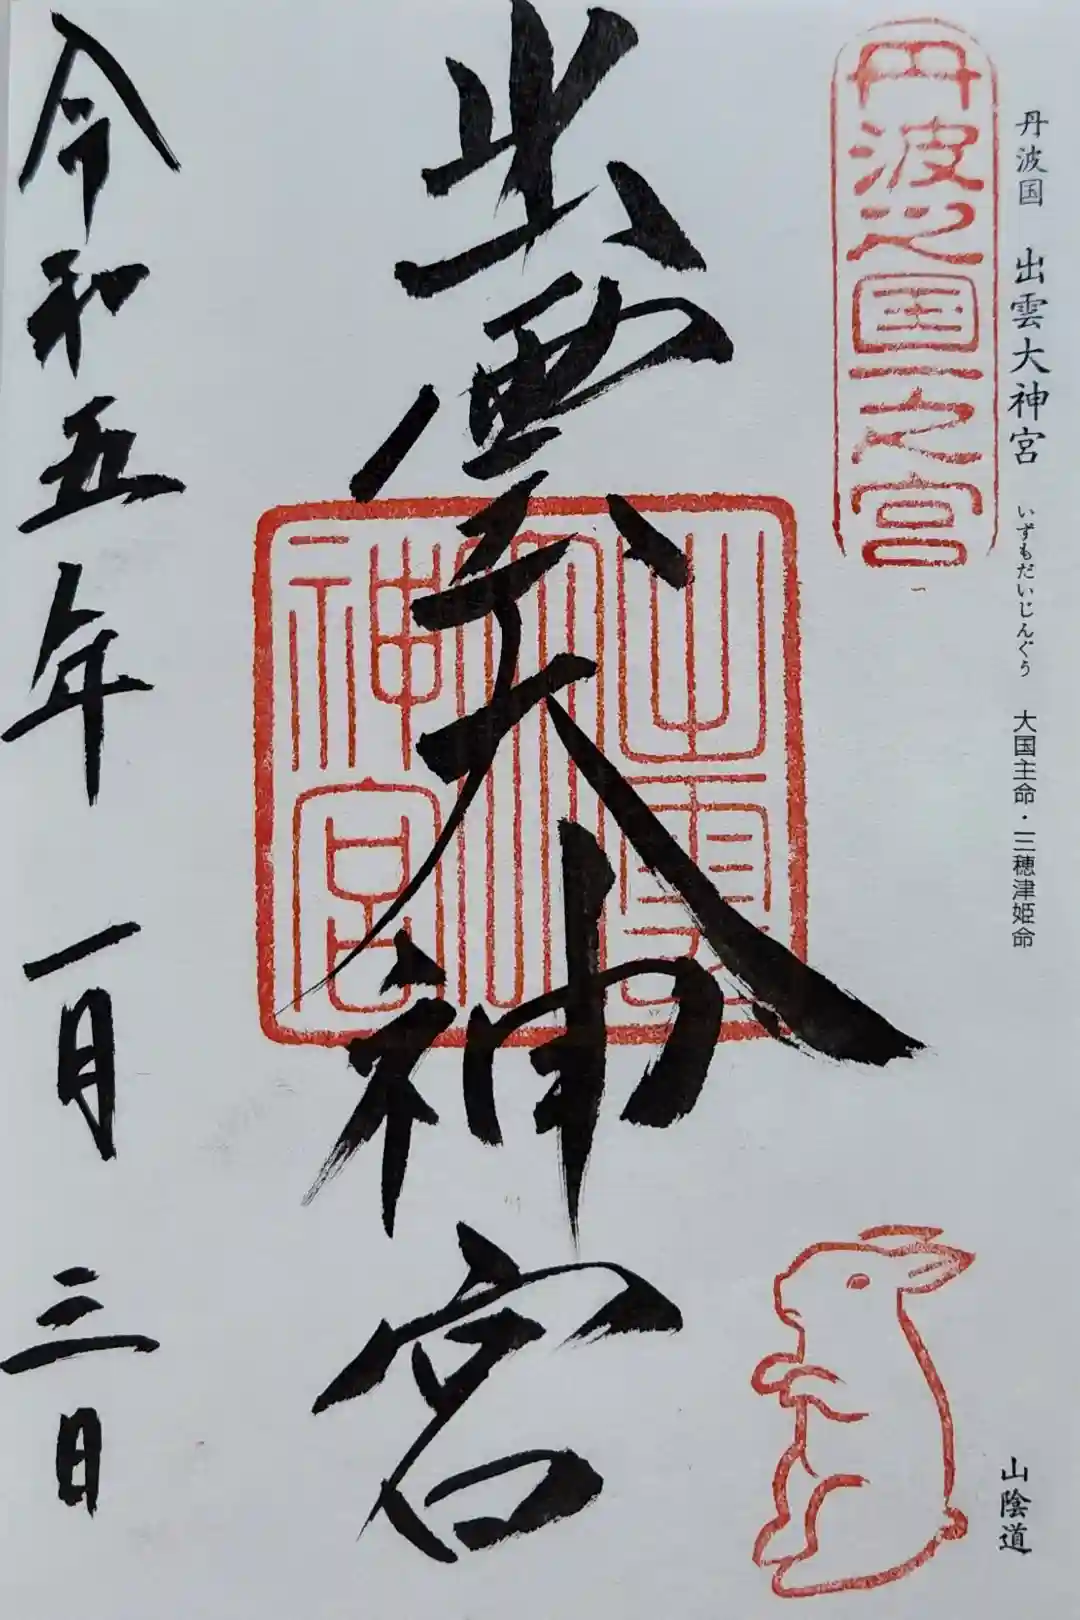 丹波国 出雲大神宮 いずもだいじんぐう 大国主命・三穂津姫命
山陰道
丹波之国一之宮
出雲大神宮
出雲
大
神宮
令和五年一月三日